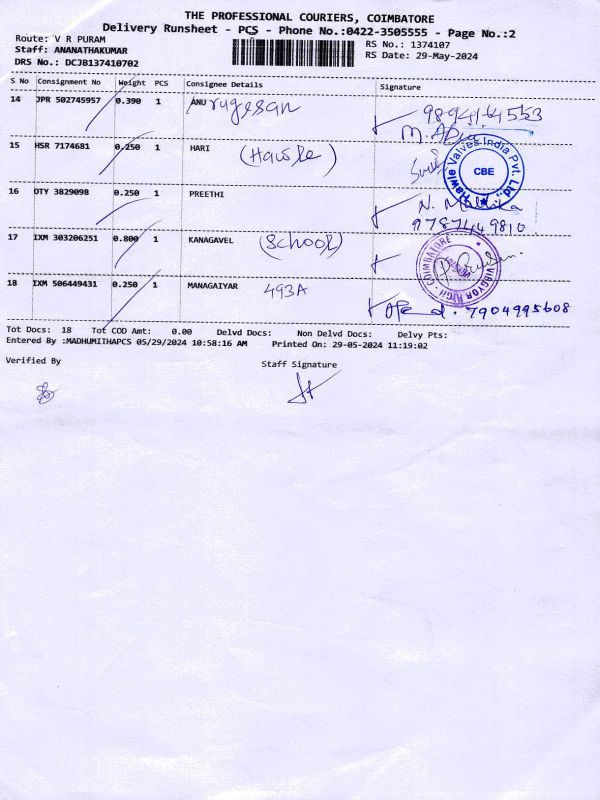 THE PROFESSIONAL COURIERS, COIMBATORE
Delivery Runsheet - PCS - Phone No.:0422-3505555 - Page No.:2
Route: V R PURAM
RS No.: 1374107
Staff: ANANATHAKUMAR
RS Date: 29-May-2024
DRS No.: DCJB137410702
S No Consignment No Weight PCS Consignee Details Signature
14 JPR 502745957 0.390 1 ANU rugesan 9894164553
15 HSR 7174681 0.250 1 HARI
Hawle Valves India Pvt. Ltd.
CBE
16 OTY 3829098 0.250 1 PREETHI
9787449810
17 IXM 303206251 0.800 1 KANAGAVEL (School)
COIMBATORE
18 IXM 506449431 0.250 1 MANAGAIYAR 493A
7904995608
Tot Docs: 18 Tot COD Amt: 0.00 Delvd Docs: Non Delvd Docs: Delvy Pts:
Entered By :MADHUMITHAPCS 05/29/2024 10:58:16 AM Printed On: 29-05-2024 11:19:02
Verified By Staff Signature